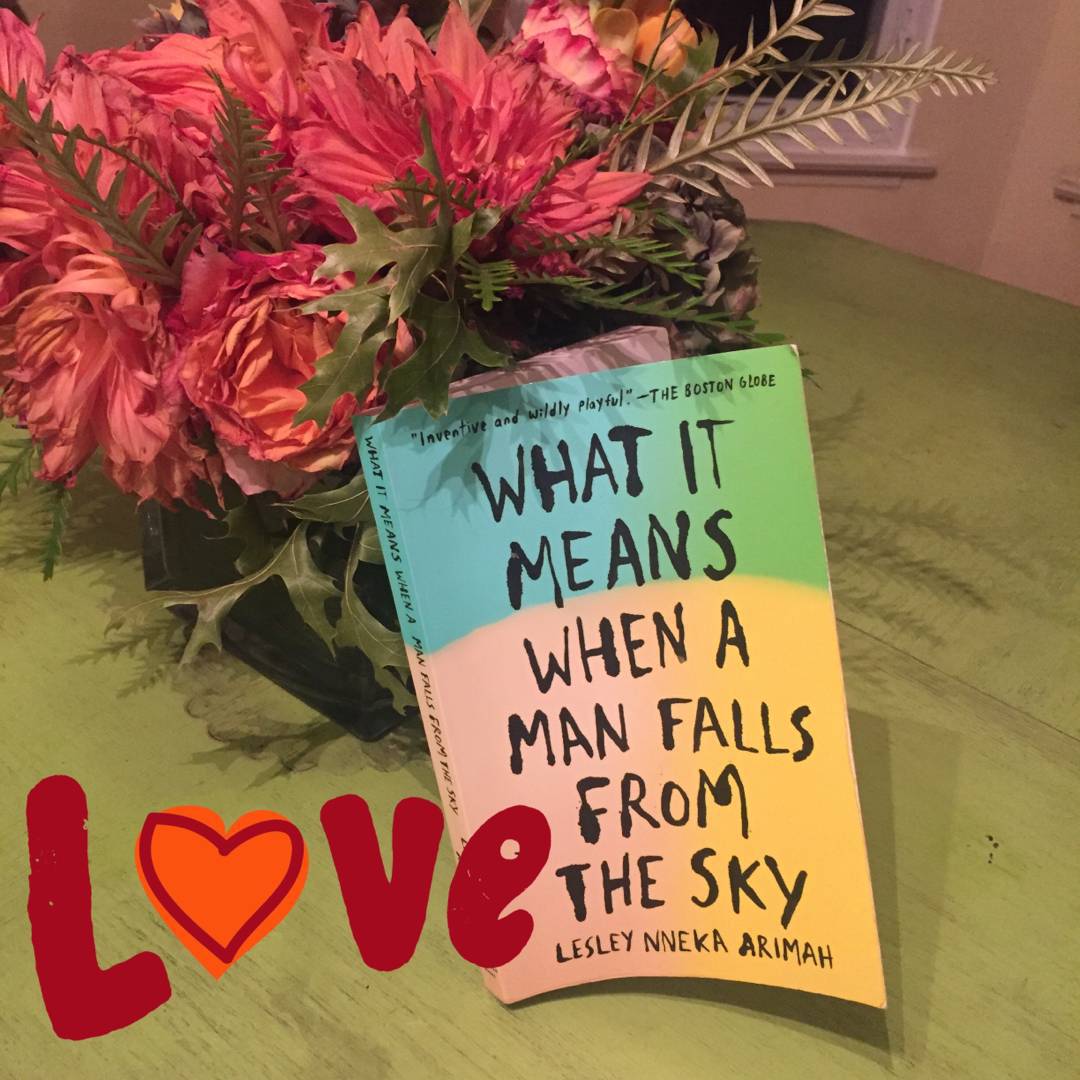 "Inventive and wildly playful." —THE BOSTON GLOBE
WHAT IT
MEANS
WHEN A
MAN FALLS
FROM
THE SKY
LESLEY NNEKA ARIMAH
WHAT IT MEANS WHEN A MAN FALLS FROM THE SKY
Love